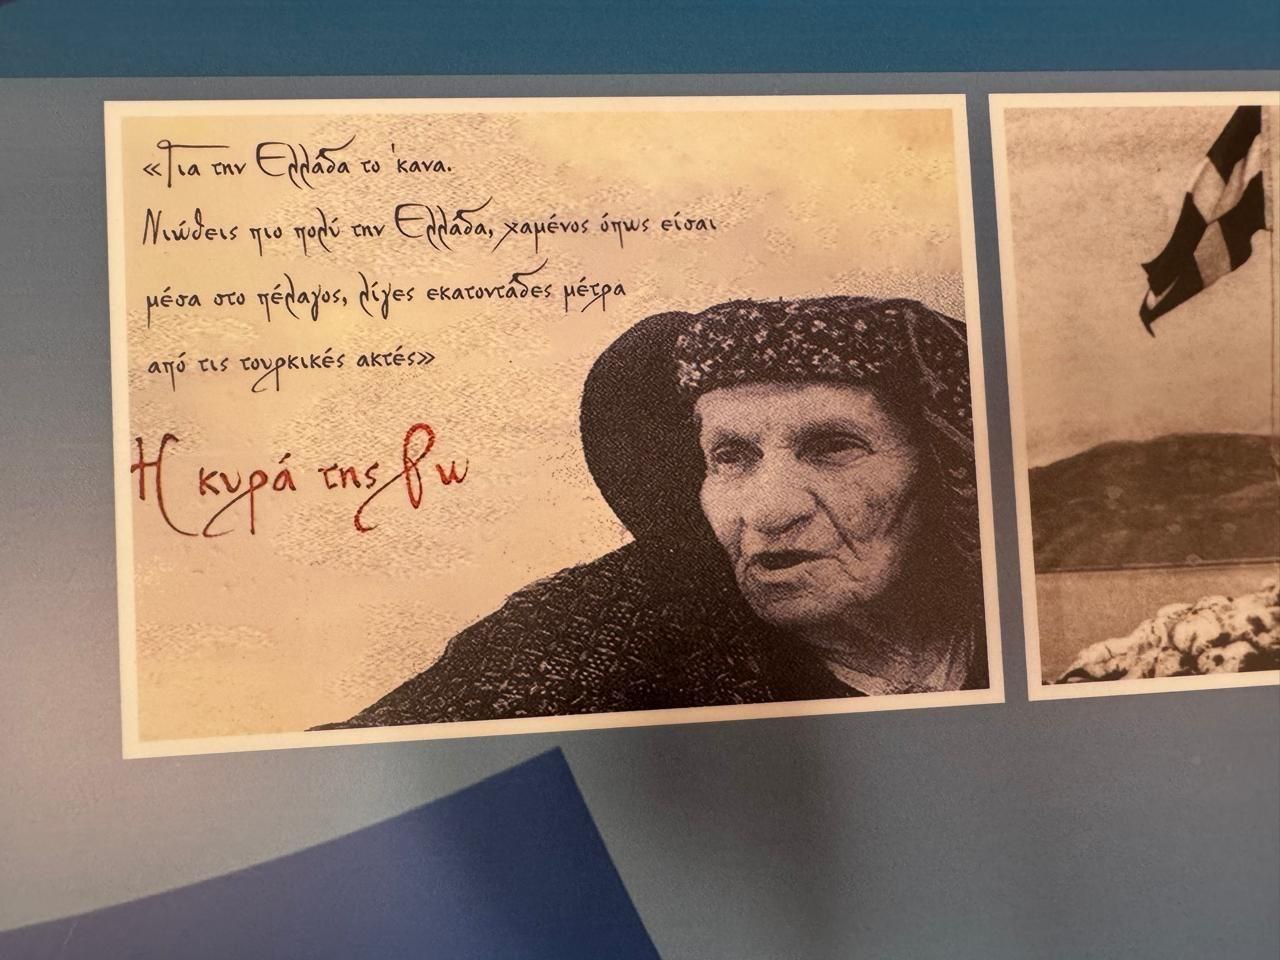 «Για την Ελλάδα το 'κανα.
Νιώθεις πιο πολύ την Ελλάδα, χαμένος όπως είσαι
μέσα στο πέλαγος, λίγες εκατοντάδες μέτρα
από τις τουρκικές ακτές»
Η κυρά της Ρω